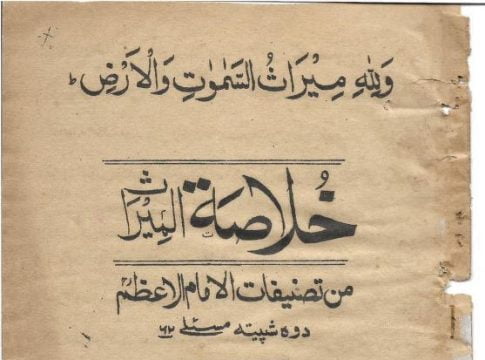 وَلِلّٰهِ مِيْرَاثُ السَّمٰوٰتِ وَالْاَرْضِ ط
خُلاصة المِيْرَاث
من تصنيفات الامام الاعظم
دوه شپيته مسئلے ٦٢